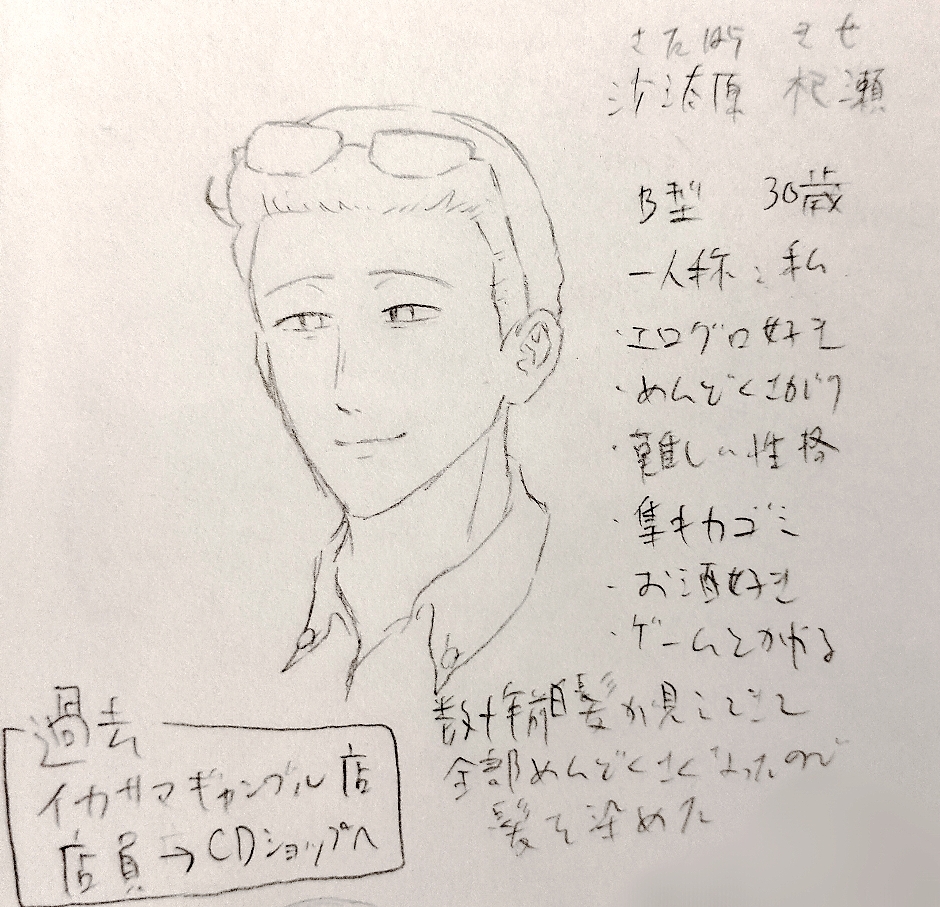 さたはら きせ
沙汰原 杞瀬
B型 30歳
一人称:私
・エログロ好き
・めんどくさがり
・難しい性格
・集中力ゴミ
・お酒好き
・ゲームとかやる
数年前髪が見えてきて
全部めんどくさくなったので
髪を染めた
過去
イカサマギャンブル店
店員→CDショップへ